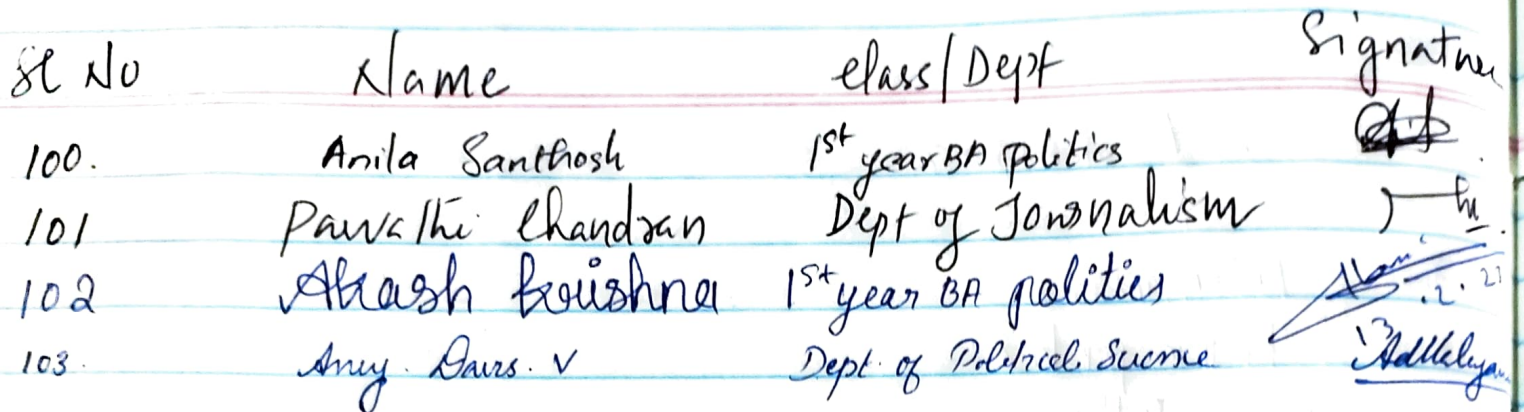 Sl No Name Class/Dept Signature
100. Anila Santhosh 1st year BA politics
101 Parvathi Chandran Dept of Journalism
102 Akash Krishna 1st year BA politics
103. Davis. V Dept. of Political Science